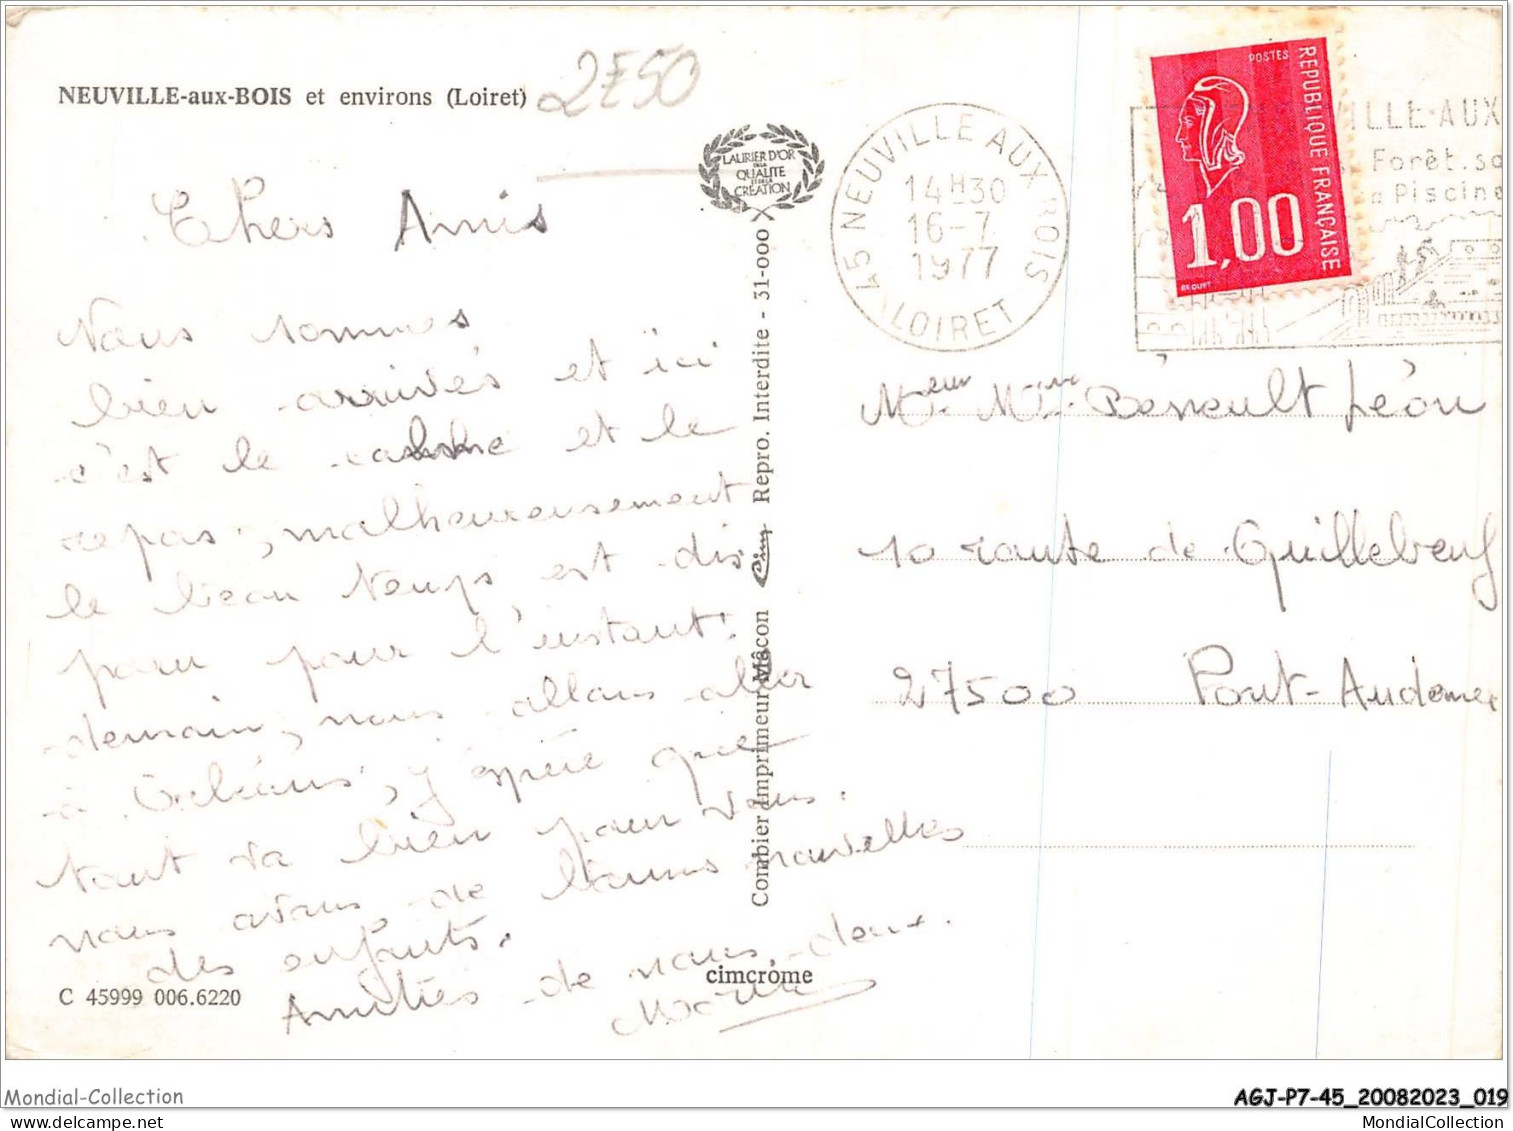 NEUVILLE-aux-BOIS et environs (Loiret)
2F50
Chers Amis
Nous sommes
bien arrivés et ici
c'est le calme et le
repos, malheureusement
le beau temps est dis
paru pour l'instant.
demain, nous allons aller
à Orléans, j'espère que
tout va bien pour vous.
nous avons de bonnes nouvelles
des enfants.
Amitiés de nous deux.
C 45999 006.6220
cimcrome
LAURIER D'OR
DE LA
QUALITE
ET DE LA
CREATION
Combier Imprimeur Mâcon Cim Repro. Interdite - 31-000
45 NEUVILLE AUX BOIS
14H30
16-7
1977
LOIRET
ILLE-AUX
Forêt. sa
a Piscine
POSTES
REPUBLIQUE FRANÇAISE
1,00
BEQUET
Meur Mme Béneoult Léon
10 route de Quillebeuf
27500 Pont-Audemer
Mondial-Collection
AGJ-P7-45_20082023_019
MondialCollection